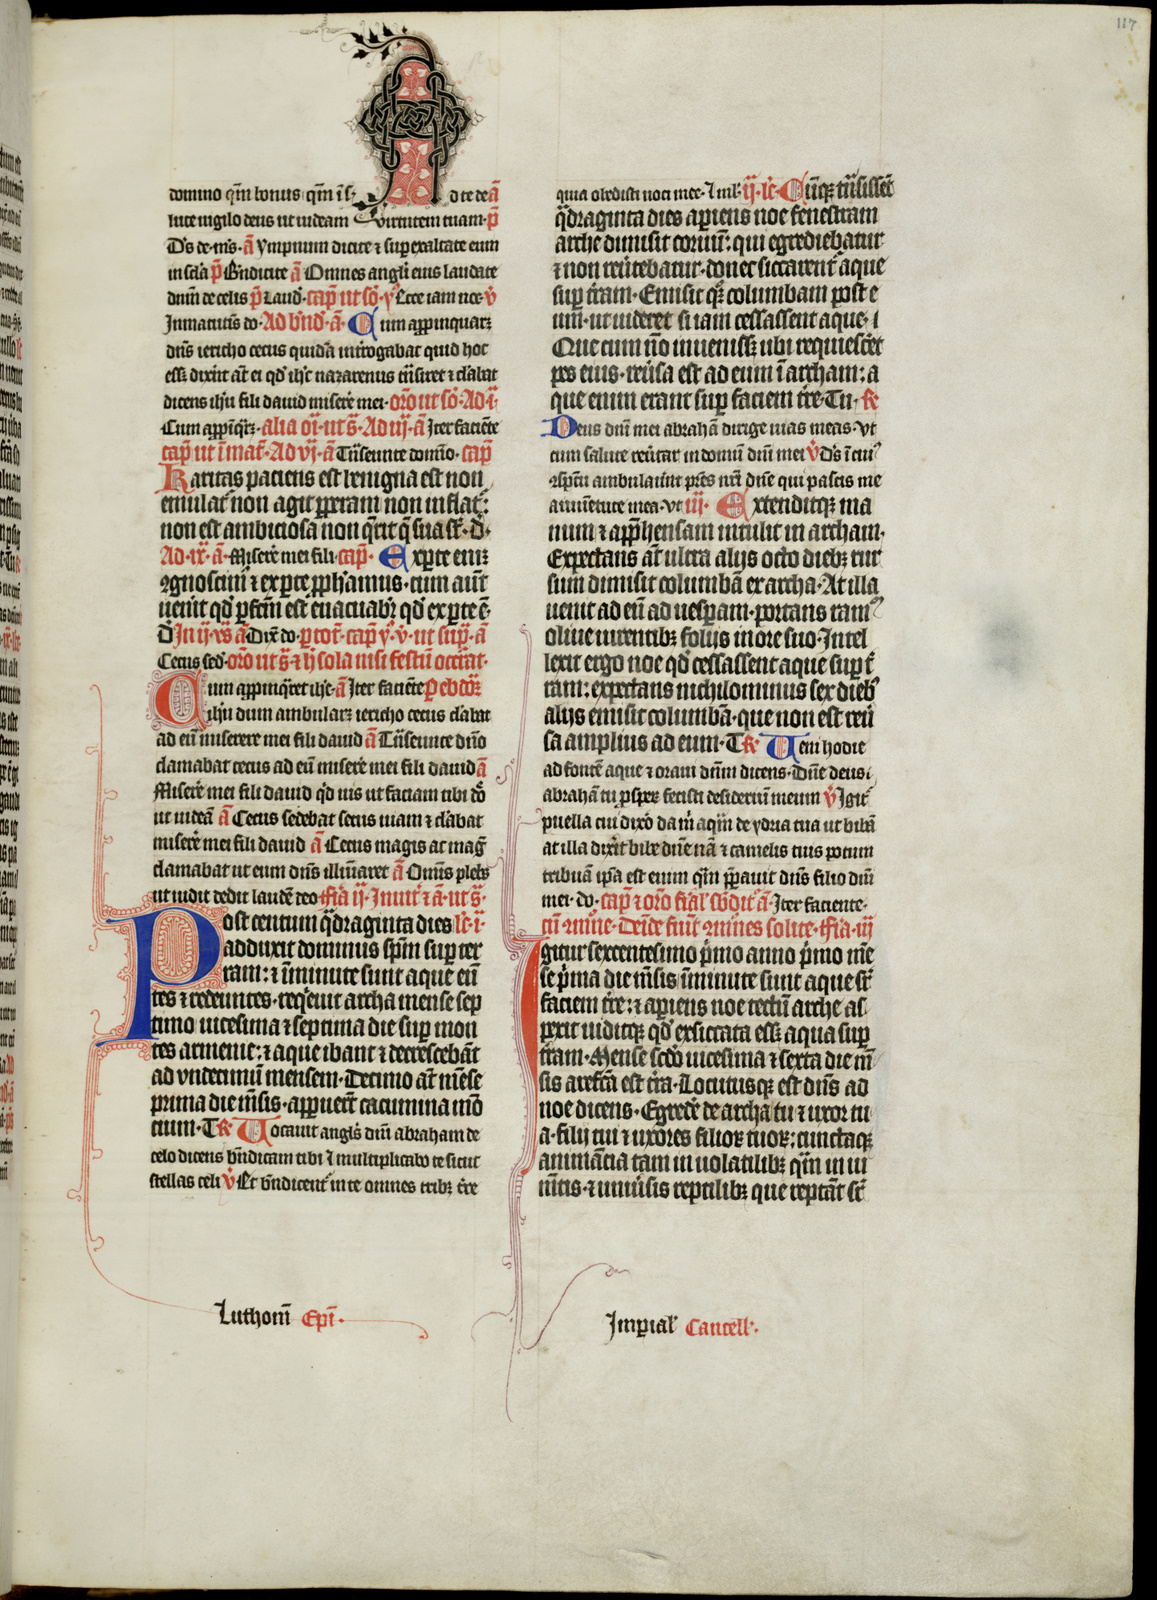 117
domino qm̄ bonus qm̄ ī s. Ad te de ā
luce uigilo deus ut uideam uirtutem tuam. p̄
D's de. m's. ā ympnum dicite ⁊ sup̱exaltate eum
in sc̄la p̄ Bn̄dicite ā Omnes angli eius laudate
dn̄m de celis p̄ Laud. cap̄ ut sō. v̄ Ecce iam noc. v̄
Inmacutus do. Ad bn̄d. ā. Cum app̱inquarꝫ
dn̄s iericho cecus quidā int̄rogabat quid hoc
essꝫ dixīt āt ei qd̓ ih̄c nazarenus t̄nsiret ⁊ cl̓abat
dicens ih̄u fili dauid misere mei. or̄o ut sō. Ad .i.
Cum app̱īqrꝫ. alia oī. ut s̄. Ad iij. ā Iter faciēte
cap̄ ut ī mat̄. Ad vj. ā Tn̄seunte domīo. cap̄
Karitas paciens est benigna est non
emulat̄ non agit pp̱eram non inflat̄:
non est ambiciosa non q̄rit q̄ sua st̄. d̄.
Ad .ix. ā. Misere mei fili. cap̄. Ex p̱te enīꝫ
ꝯgnoscim̄ ⁊ ex p̱te p̱ph̄amus. cum aūt
uen̄it qd̓ p̱fcm̄ est euacuabr̄ qd̓ ex p̱te ē.
d̄ In ij. v̄s ā Dix̄ do. p̄ tot̄. cap̄ v̄. v̄. ut sup̄. ā
Cecus sed̓. or̄o ut s̄ ⁊ h̄ sola nisi festū occ̄rat.
Cum app̱inq̄ret ih̄c. ā Iter faciēte p̱ ebdo̅ꝫ
ih̄u dum ambularꝫ iericho cecus cl̓abat
ad eū miserere mei fili dauid ā Tn̄seunte dn̄o
clamabat cecus ad eū misere mei fili dauid ā
Misere mei fili dauid qd̓ uis ut faciam tibi dō
ut uideā ā Cecus sedebat secus uiam ⁊ cl̓abat
misere mei fili dauid ā Cecus magis ac mag̅
clamabat ut eum dn̄s illuīaret ā Omīs plebs
ut uidit dedit laudē deo ffīa ij. Inuit̄ ⁊ ā. ut s̄.
Post centum q̄draginta dies lc̄. i.
adduxit dominus spm̄ sup̱ ter
ram: ⁊ īminute sunt aque eū
tes ⁊ redeuntes. req̄euit archa mense sep
timo uicesima ⁊ septima die sup̱ mon
tes armenie: ⁊ aque ibant ⁊ decrescebāt
ad vndecimū mensem. Decimo āt mēse
prima die m̄sis. app̱uert̄ cacumina mō
cium. T R̄ Uocauit angls̄ dn̄i abraham de
celo dicens bn̄dicam tibi ⁊ multiplicabo te sicut
stellas celi v̄ Et bn̄dicent̄ in te omnes tribꝫ t̄re
Luthonī Epī.
quia obedisti uoci mee. ⁊ ml̓. ij. lc̄. Cūqꝫ tn̄sissēt
q̄draginta dies ap̱iens noe fenestram
arche dimisit coruū: qui egrediebatur
⁊ non reūtebatur. donec siccarent̄ aque
sup̱ t̄ram. Emisit qꝫ columbam post e
um. ut uideret si iam cessassent aque. i
Que cum nō inuenissꝫ ubi requiesc̄et
pes eius. reūsa est ad eum ī archam: a
que enim erant sup̱ faciem t̄re. Tu. R̄
Deus dn̄i mei abrahā dirige uias meas. Vt
cum salute reūtar in domū dn̄i mei v̄ D's ī cui᷒
ꝯsp̱ctu ambulaūnt pr̄es nr̄i dn̄e qui pascis me
a iuuētute mea. vt iij. Extenditqꝫ ma
num ⁊ app̱hensam intulit in archam.
Expectans āt ultra alijs octo diebꝫ rur
sum dimisit columbā ex archa. At illa
uenit ad eū ad uesp̱am. portans ram᷒
oliue uirentibꝫ folijs in ore suo. Intel
lexit ergo noe qd̓ cessassent aque sup̱ t̄
ram: expectans nichilominus sex dieb᷒
alijs emisit columbā. que non est reū
sa amplius ad eum. T R̄ Ueni hodie
ad fontē aque ⁊ oraui dn̄m dicens. Dn̄e deus.
abrahā tu p̱spere fecisti desideriū meum v̄ Igit̄
puella cui dixō da m̄ aq̄m de ydria tua ut bibā
at illa dix̄it bibe dn̄e nā ⁊ camelis tuis potum
tribuā ip̄a est eum q̄m pp̱auit dn̄s filio dn̄i
mei. do. cap̄ ⁊ or̄o fīal̓ ꝯdit̄ ā. Iter faciente.
cū mīne. Deīde fiūt mīnes solite. ffīa. iij
Igitur sexcentesimo p̄mo anno p̄mo mē
se p̄ma die m̄sis īminute sunt aque sr̄
faciem t̄re: ⁊ ap̱iens noe tectū arche as
pexit uiditqꝫ qd̓ exsiccata essꝫ aqua sup̱
t̄ram. Mense scdō uicesima ⁊ sexta die m̄
sis arefc̄a est t̄ra. Locutusqꝫ est dn̄s ad
noe dicens. Egredere de archa tu ⁊ uxor tu
a. filij tui ⁊ uxores filioꝝ tuoꝝ: cunctaqꝫ
animācia tam in uolatilibꝫ q̄m in iu
m̄tis. ⁊ uniuīsis reptilibꝫ que reptāt sr̄
Imp̱ial̓ Cancell̓.